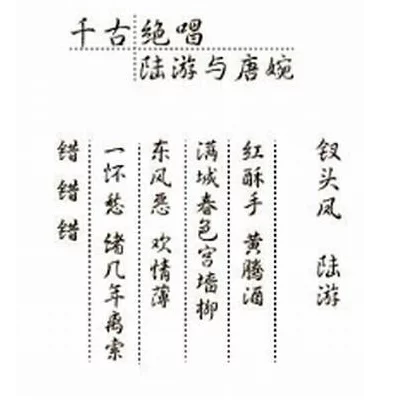 千古绝唱
陆游与唐婉
钗头凤 陆游
红酥手 黄腾酒
满城春色宫墙柳
东风恶 欢情薄
一怀愁 绪几年离索
错错错